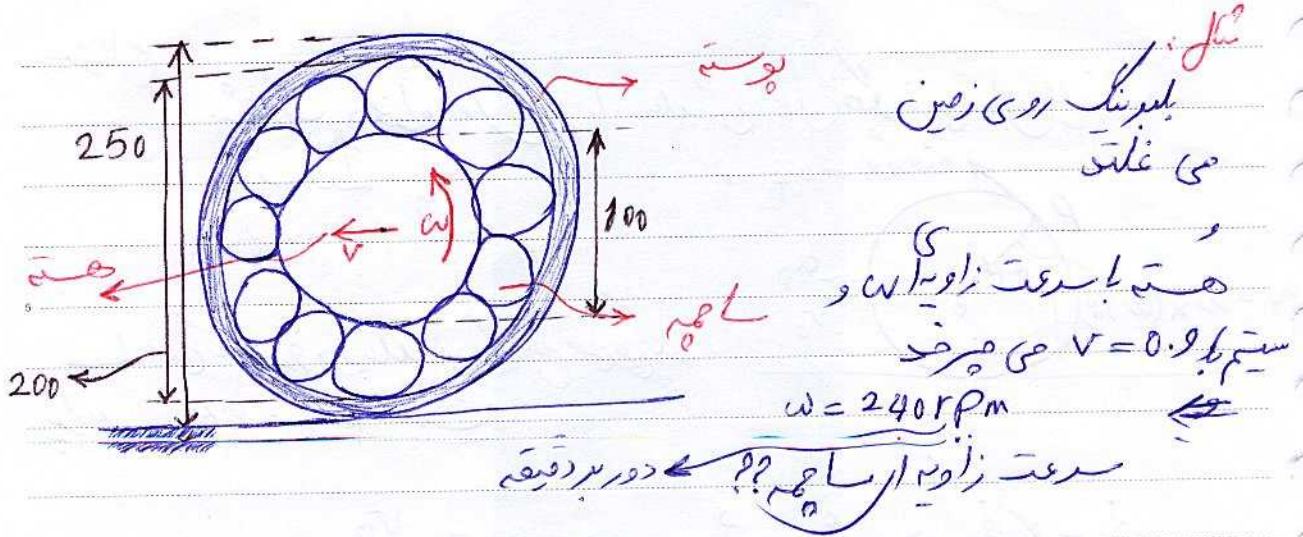 مثال:
بلبرینگ روی زمین
می غلتد
هسته با سرعت زاویه ای ω و
سیستم با v = 0.9 می چرخد
ω = 240 rpm
سرعت زاویه ای ساچمه ??
دور بر دقیقه
پوسته
250
100
v
ω
هسته
ساچمه
200